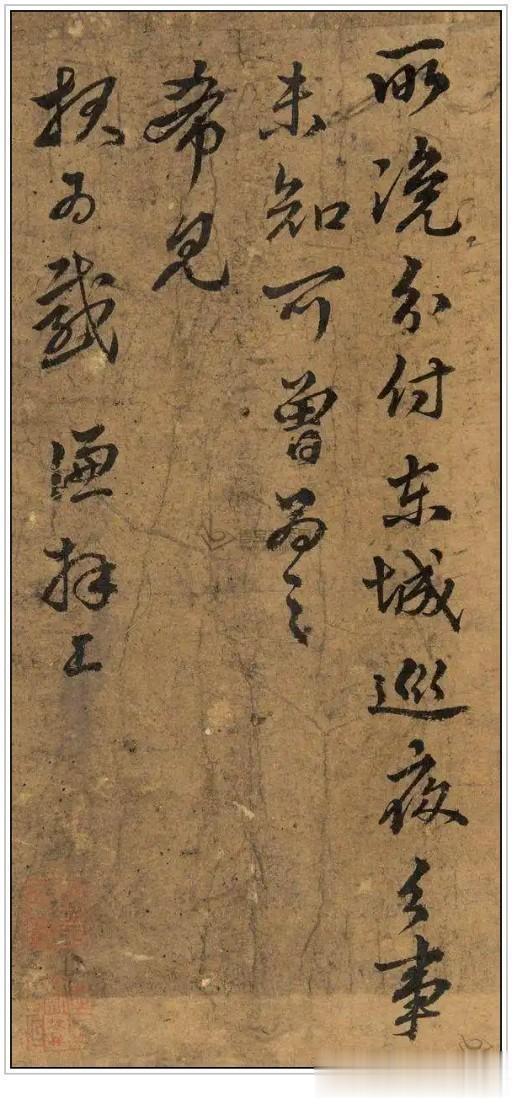 所浼分付東城巡夜之事
未知可曾為之
希見
報為感 謙拜上